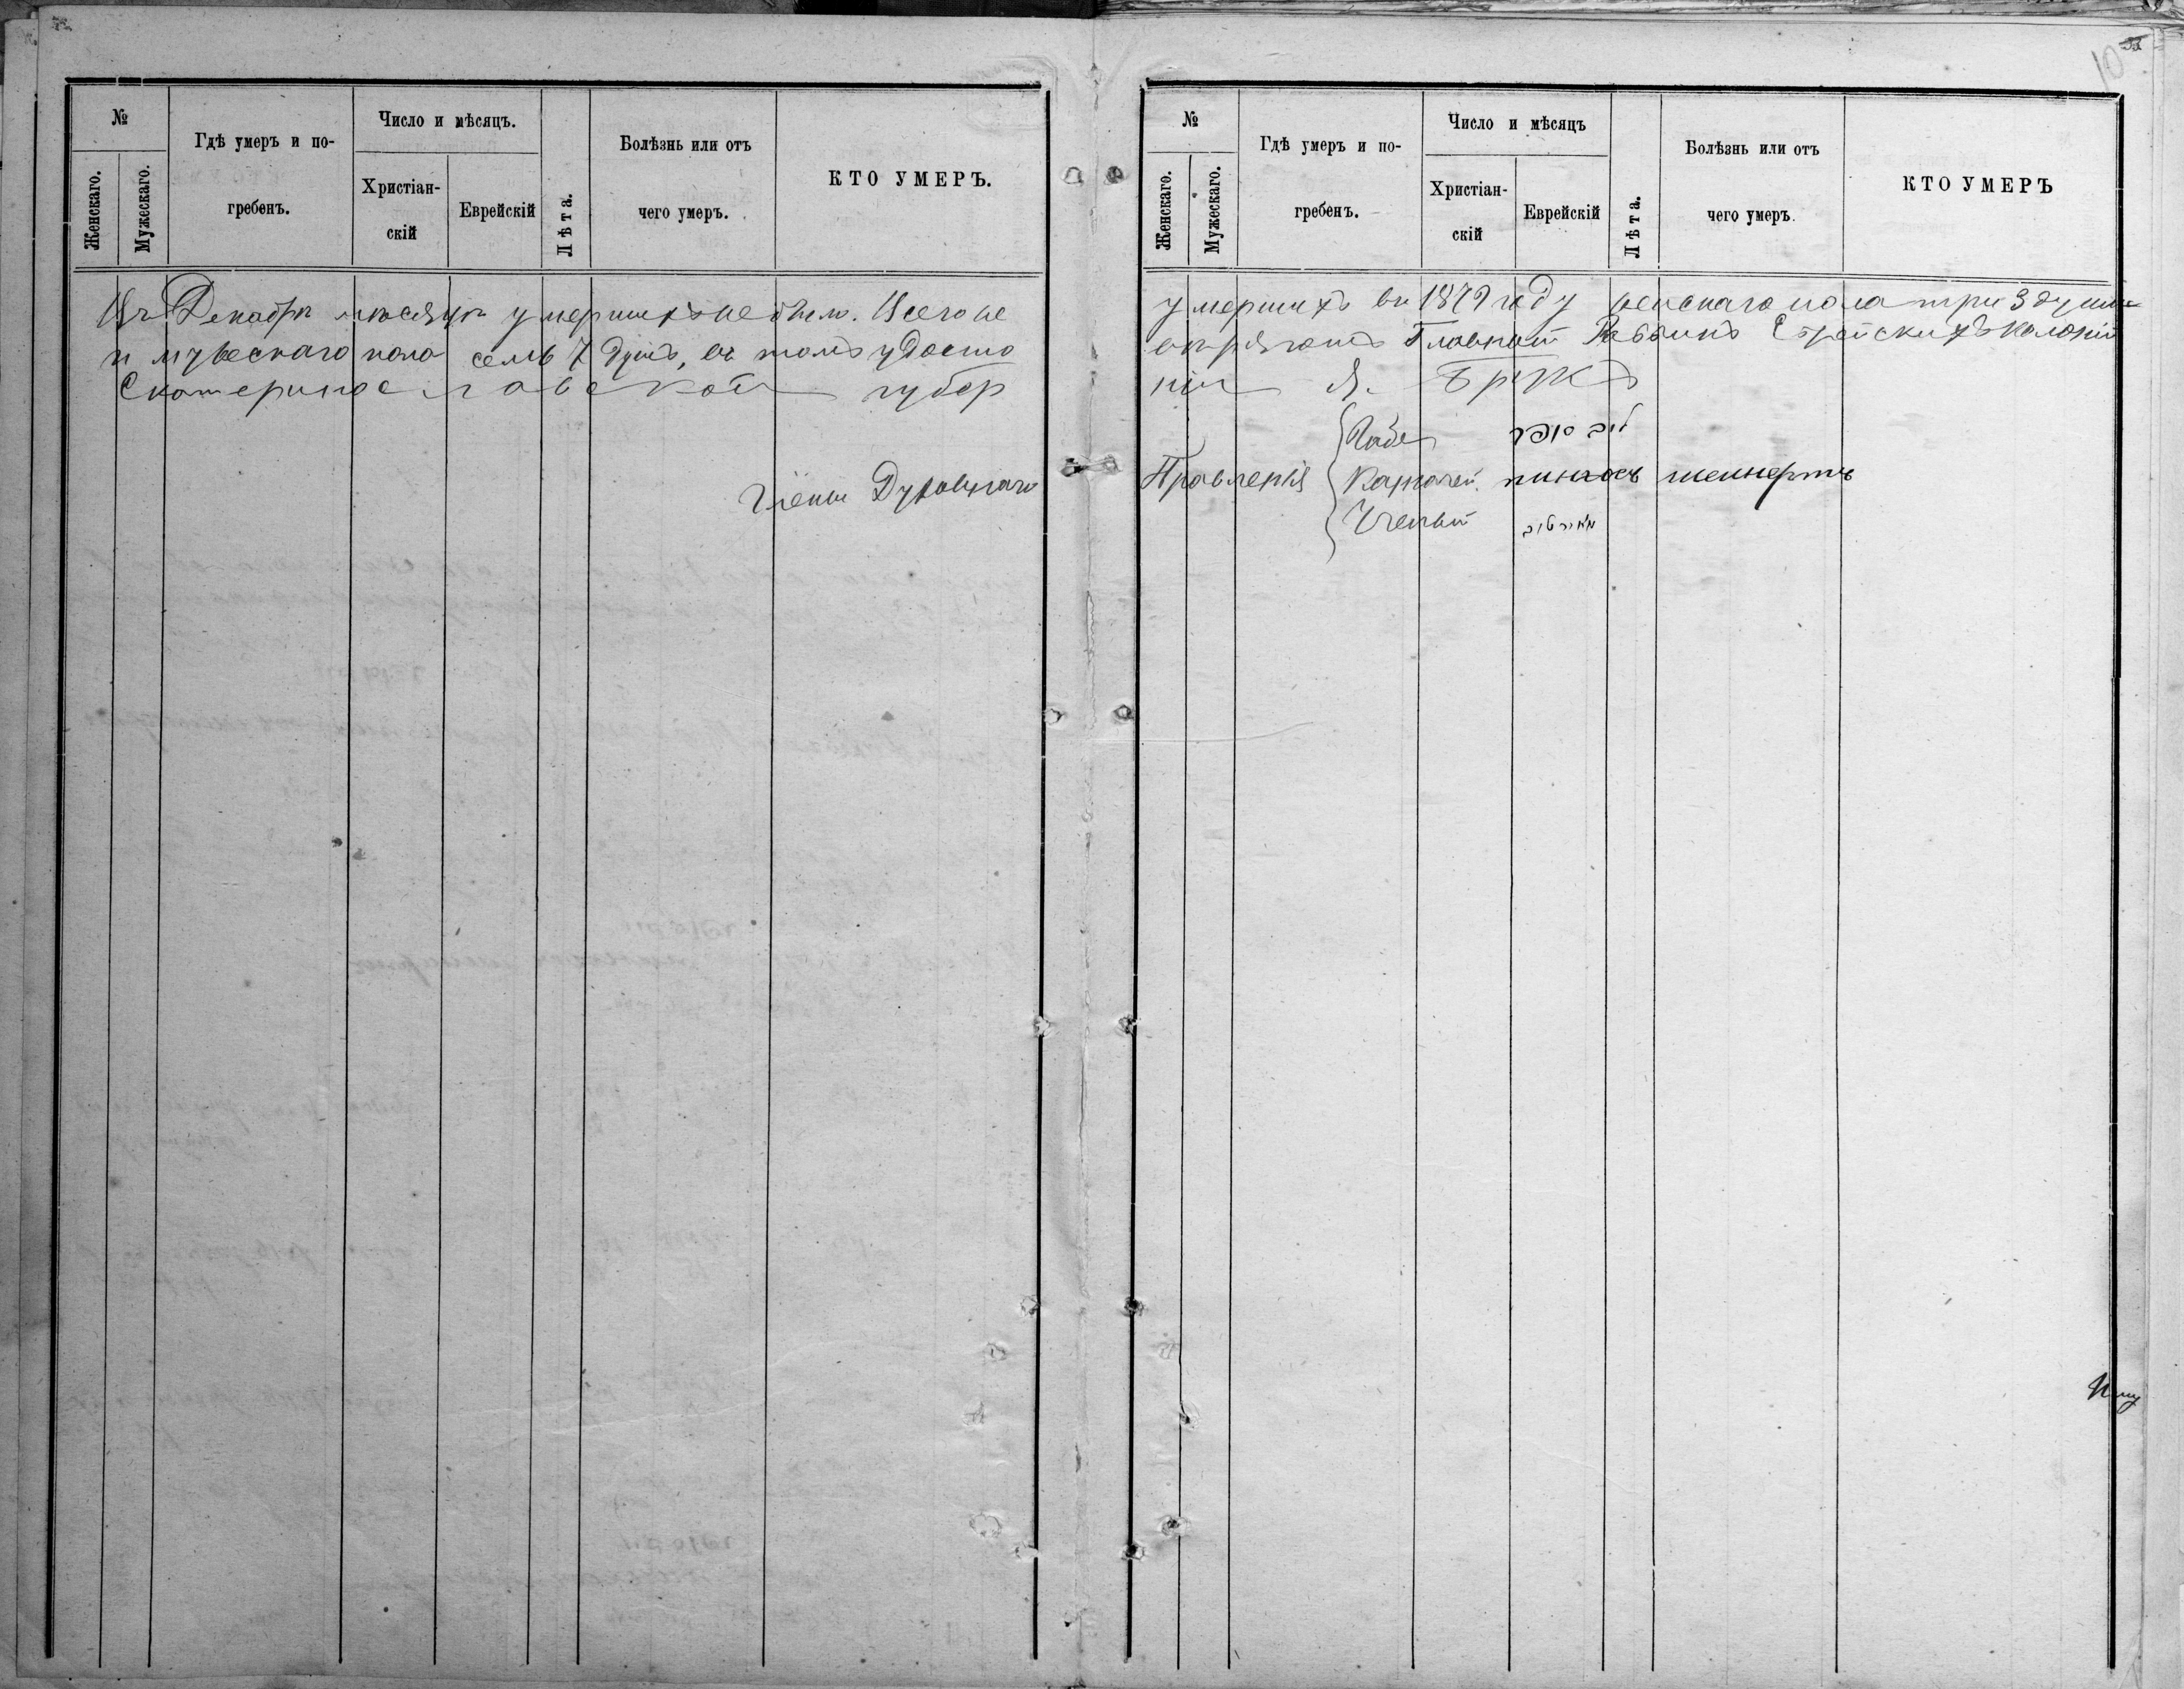 №
Женскаго.
Мужескаго.
Гдѣ умеръ и по-
гребенъ.
Число и мѣсяцъ.
Христіан-
скій
Еврейскій
Лѣта.
Болѣзнь или отъ
чего умеръ.
КТО УМЕРЪ.
Въ Декабрѣ мѣсяцѣ умершихъ не было. Всего же
и мужескаго пола семь 7 душъ, въ томъ удосто
Екатеринославской губер
Члены Духовнаго
10
№
Женскаго.
Мужескаго.
Гдѣ умеръ и по-
гребенъ.
Число и мѣсяцъ
Христіан-
скій
Еврейскій
Лѣта.
Болѣзнь или отъ
чего умеръ.
КТО УМЕРЪ
умершихъ въ 1879 году женскаго пола три 3 души
вѣряютъ Главный Раввинъ Еврейскихъ колоній
ніи
Правленія
Казначей. пинхосъ
Ученый